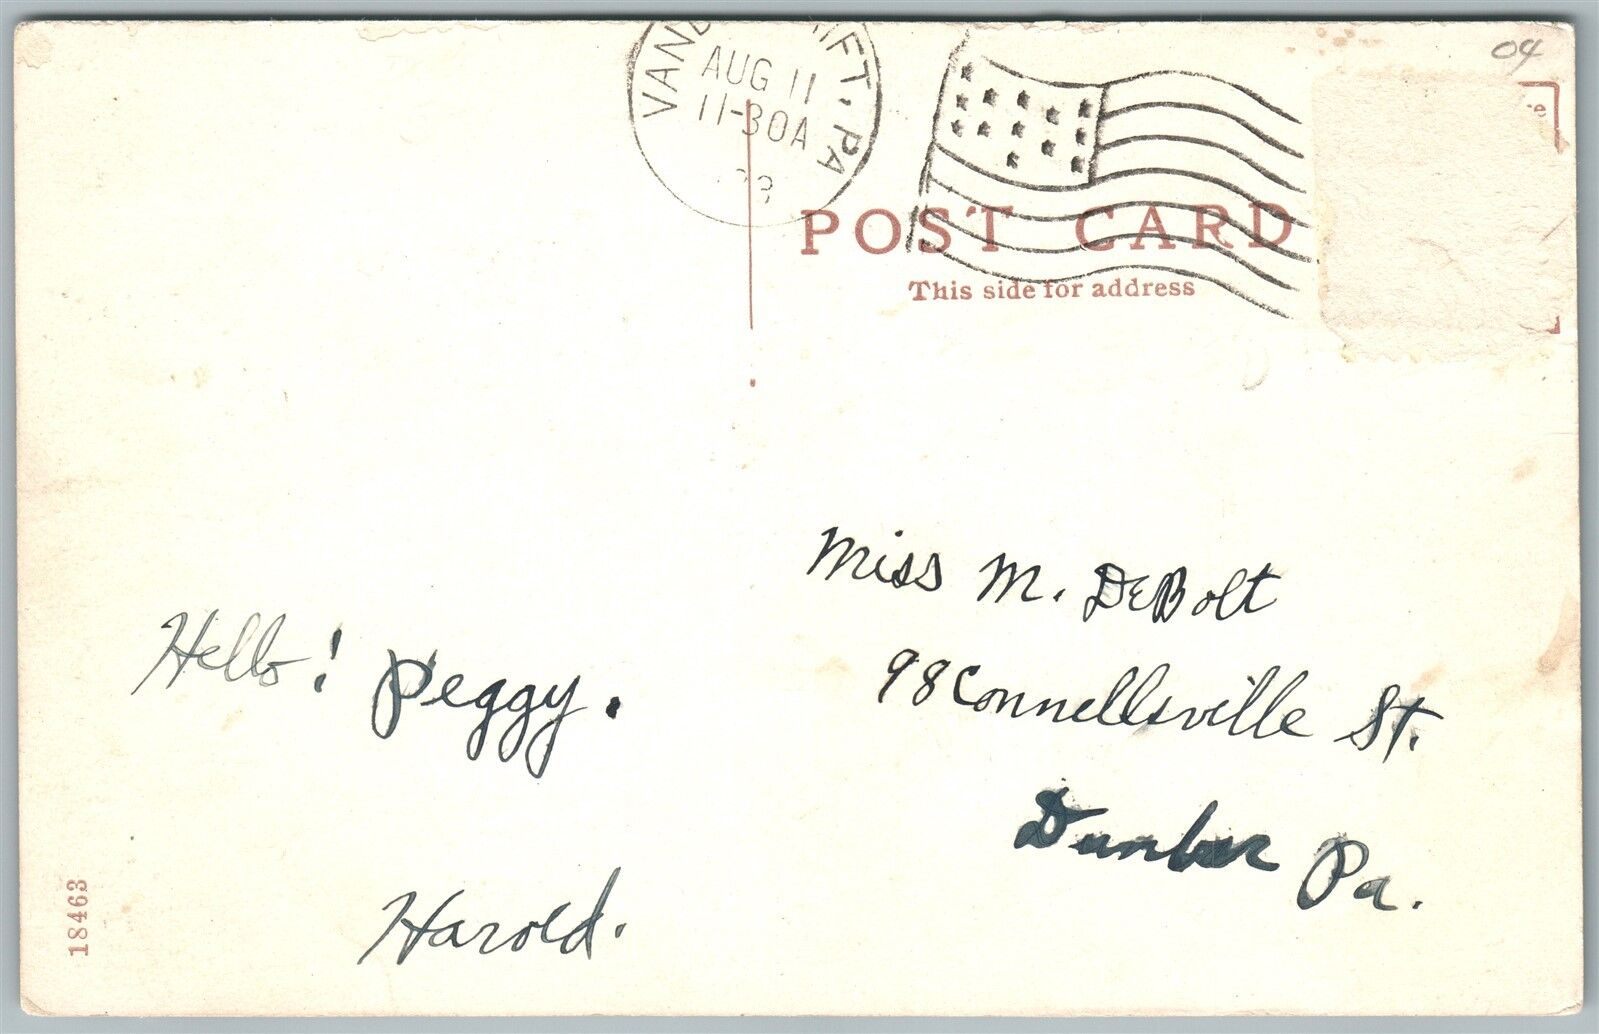 04
AUG 11
11-30A
PA
POST CARD
This side for address
Miss M. DeBolt
98 Connellsville St.
Dunbar Pa.
Hello! Peggy.
Harold.
18463